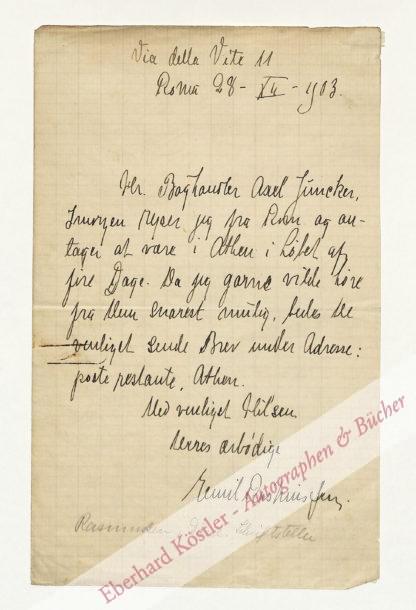 Via della Vite 11
Roma 28 - XII - 1903.
Hr. Boghandler Axel Juncker,
Imorgen rejser jeg fra Rom og an-
tager at være i Athen i Løbet af
fire Dage. Da jeg gærne vilde høre
fra Dem snarest mulig, bedes De
venligst sende Brev under Adresse:
poste restante, Athen.
Med venligst Hilsen
Deres ærbødige
Emil Rasmussen.
Rasmussen, Schriftsteller
Eberhard Köstler - Autographen & Bücher